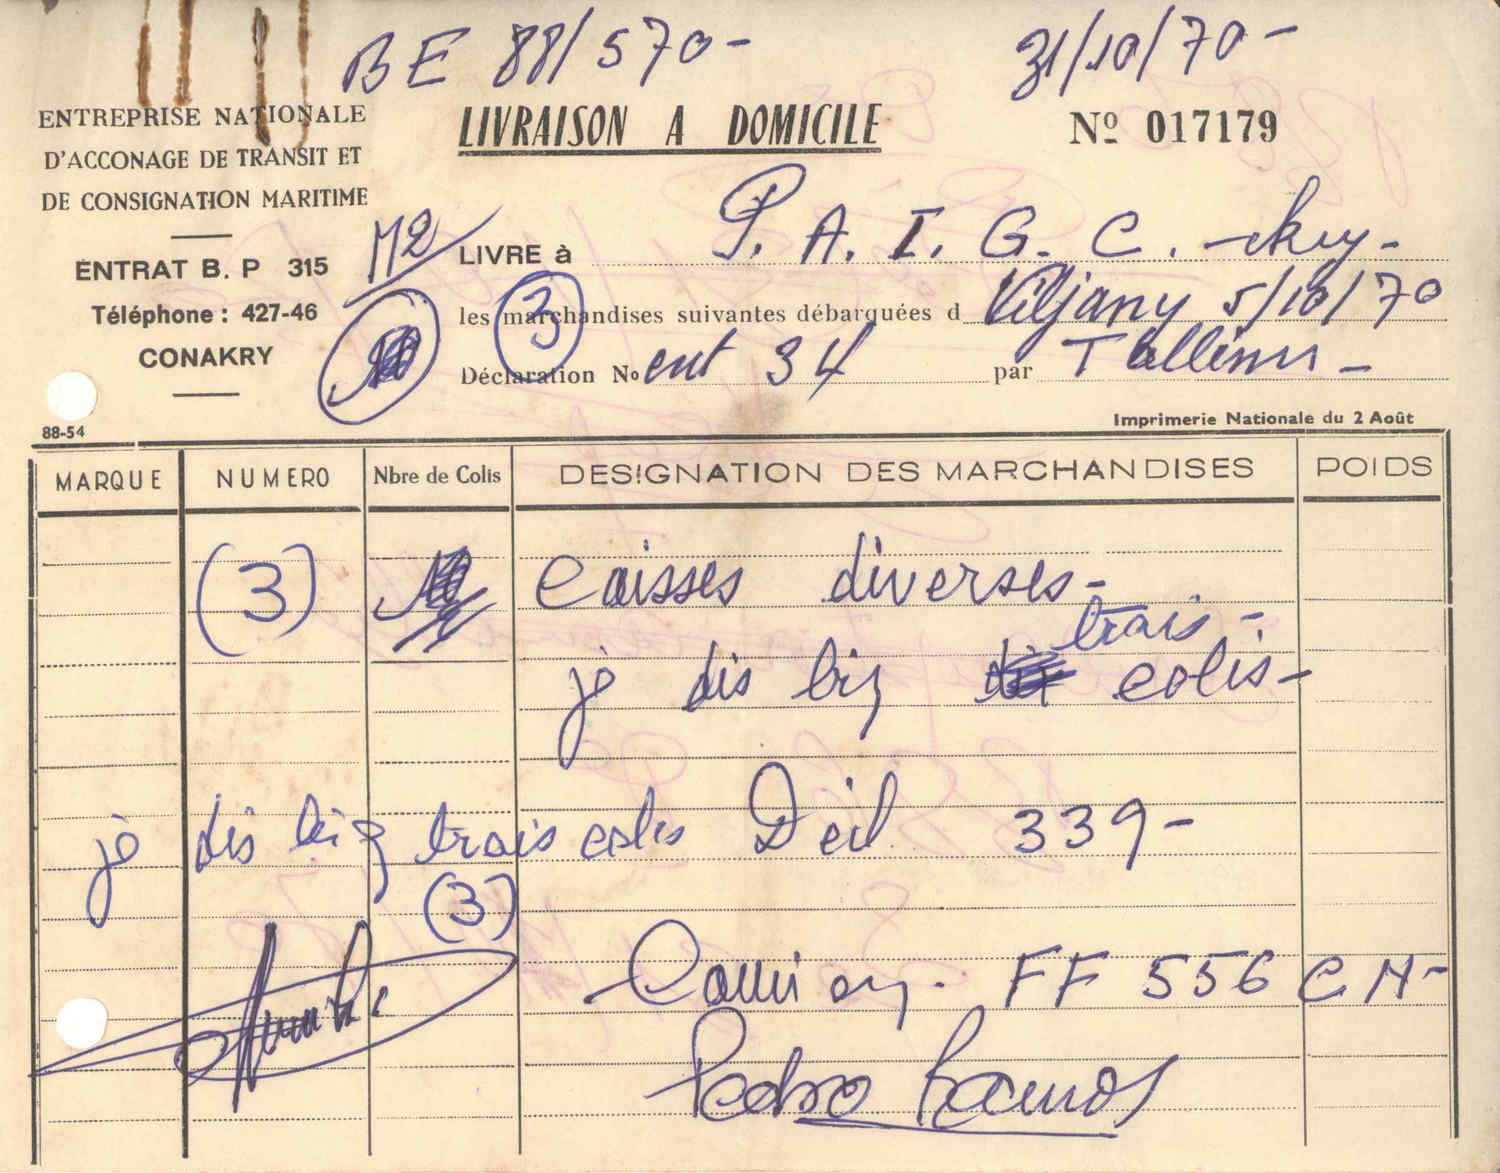 BE 88/570-
31/10/70-
ENTREPRISE NATIONALE
D'ACCONAGE DE TRANSIT ET
DE CONSIGNATION MARITIME
LIVRAISON A DOMICILE
Nº 017179
ENTRAT B. P 315
Téléphone : 427-46
CONAKRY
LIVRE à P. A. I. G. C. - ckry-
(3)
les marchandises suivantes débarquées d Viljany 5/10/70
Déclaration No ent 34 par Tallinn -
Imprimerie Nationale du 2 Août
88-54
MARQUE NUMERO Nbre de Colis DESIGNATION DES MARCHANDISES POIDS
(3) Caisses diverses-
trais -
je dis big colis-
je dis big trais colis D ecl 339-
(3)
Camion - FF 556 CM-
Pedro Ramos